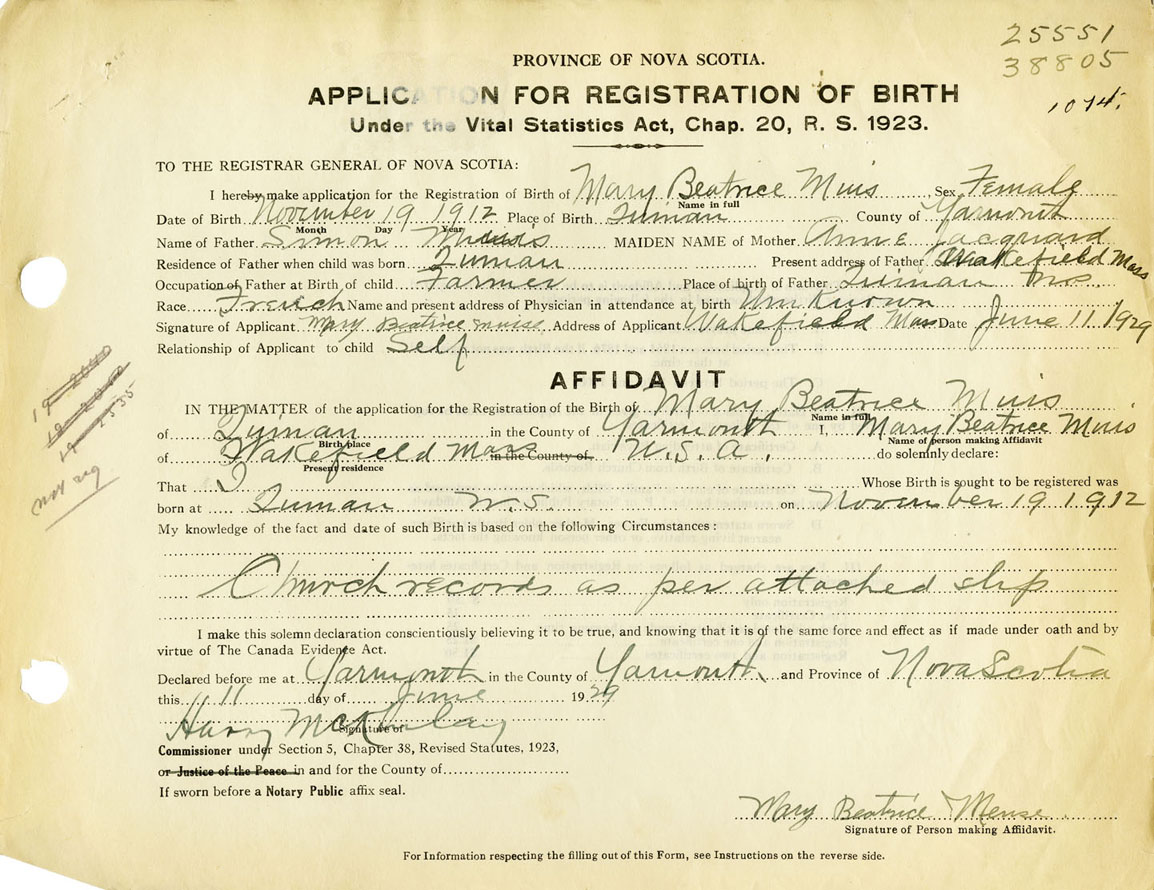 25551
38805
1074.
PROVINCE OF NOVA SCOTIA.
APPLICATION FOR REGISTRATION OF BIRTH
Under the Vital Statistics Act, Chap. 20, R. S. 1923.
TO THE REGISTRAR GENERAL OF NOVA SCOTIA:
I hereby make application for the Registration of Birth of Mary Beatrice Muis Sex Female
Name in full
Date of Birth November 19 1912 Place of Birth Quinan County of Yarmouth
Month Day Year
Name of Father Simon Muis MAIDEN NAME of Mother Anne Jacquard
Residence of Father when child was born Quinan Present address of Father Wakefield Mass
Occupation of Father at Birth of child Farmer Place of birth of Father Quinan N.S.
Race French Name and present address of Physician in attendance at birth Unknown
Signature of Applicant Mary Beatrice Muise Address of Applicant Wakefield Mass Date June 11 1929
Relationship of Applicant to child Self
AFFIDAVIT
IN THE MATTER of the application for the Registration of the Birth of Mary Beatrice Muis
Name in full
of Quinan in the County of Yarmouth I, Mary Beatrice Muis
Birthplace Name of person making Affidavit
of Wakefield Mass in the County of U.S.A. do solemnly declare:
Present residence
That I Whose Birth is sought to be registered was
born at Quinan N.S. on November 19 1912
My knowledge of the fact and date of such Birth is based on the following Circumstances:
not reg
Church records as per attached slip
I make this solemn declaration conscientiously believing it to be true, and knowing that it is of the same force and effect as if made under oath and by
virtue of The Canada Evidence Act.
Declared before me at Yarmouth in the County of Yarmouth and Province of Nova Scotia
this 11 day of June 1929
Harry McKinlay
Signature of
Commissioner under Section 5, Chapter 38, Revised Statutes, 1923,
or Justice of the Peace in and for the County of
If sworn before a Notary Public affix seal.
Mary Beatrice Meuse
Signature of Person making Affiidavit.
For Information respecting the filling out of this Form, see Instructions on the reverse side.